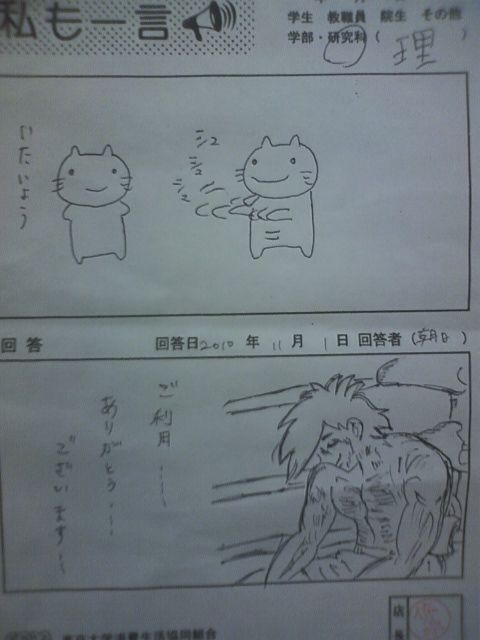 私も一言
学生 教職員 院生 その他
学部・研究科 ( 理 )
いたいよう
シュッ
シュッ
シュッ
回答 回答日 2010 年 11 月 1 日 回答者 (朝日)
ご利用……
ありがとう……
ございます……